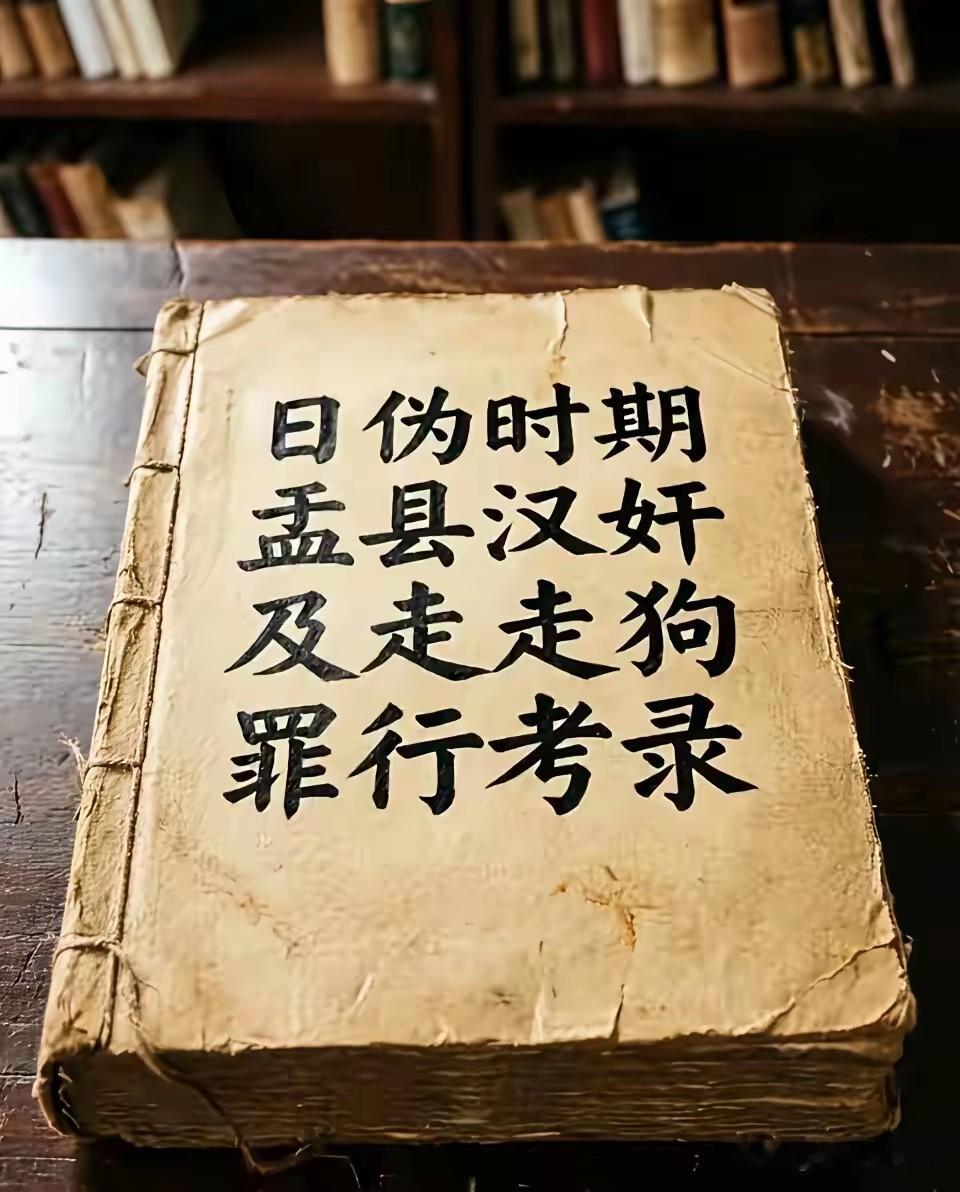 日伪时期
盂县汉奸
及走走狗
罪行考录